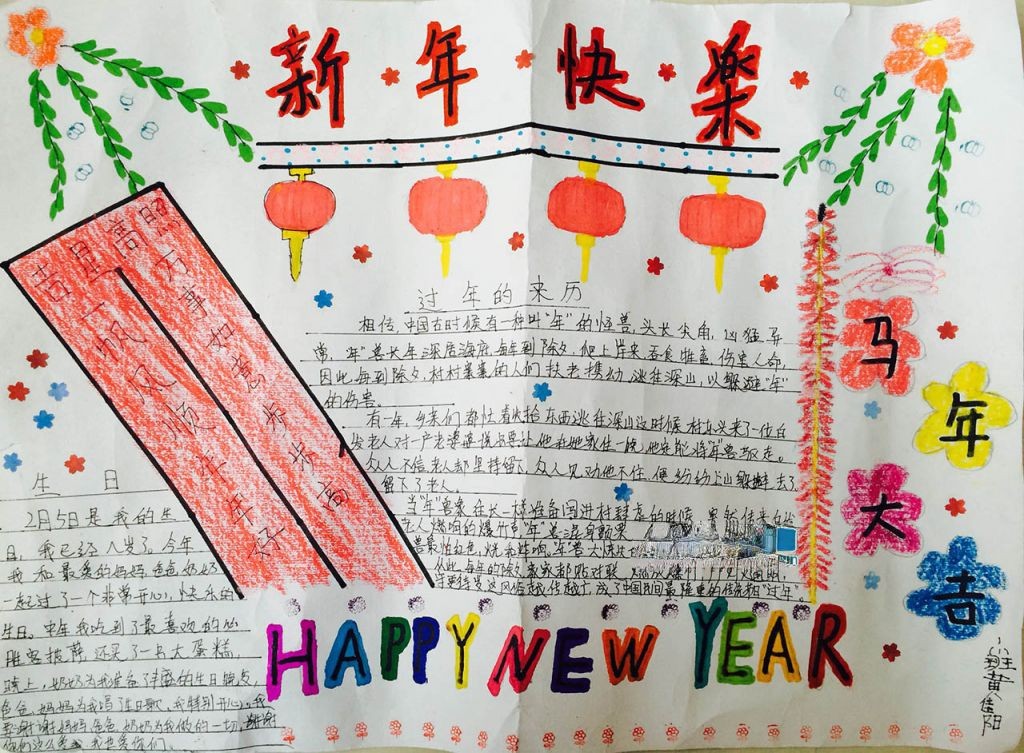 新年快樂
吉星高照
一帆风顺年年好
万事如意步步高
过年的来历
相传,中国古时候有一种叫"年"的怪兽,头长尖角,凶猛异
常,"年"兽长年深居海底,每年到除夕,爬上岸来,吞食牲畜伤害人命,
因此,每到除夕,村村寨寨的人们扶老携幼,逃往深山,以躲避"年"
的伤害。
有一年,乡亲们都忙着收拾东西逃往深山这时候村东头来了一位白
发老人对一户老婆婆说只要让他在她家住一晚,他定能将"年"兽驱走。
众人不信,老人都坚持留下,众人见劝他不住,便纷纷上山躲避去了
留下了老人。
当"年"兽象往长一样准备闯进村肆虐的时候,突然传来白
老人烧响的爆竹声"年"兽混身颤栗
兽最怕红色,火光和炸响,
从此,每年的除夕,家家都贴对联
成了中国民间最隆重的传统节"过年"
马年大吉
生日
2月5日是我的生
日,我已经八岁了。今年
我和最爱的妈妈,爸爸,奶奶
一起过了一个非常开心,快乐的
生日。中午我吃到了最喜欢的必
胜客披萨,还买了一只大蛋糕,
晚上,奶奶为我准备了丰盛的生日晚点,
爸爸,妈妈为我唱了生日歌,我特别开心,我
要谢谢妈妈,爸爸,奶奶为我做的一切,谢谢
你们这么爱我,我也爱你们。
HAPPY NEW YEAR
班黄佳阳